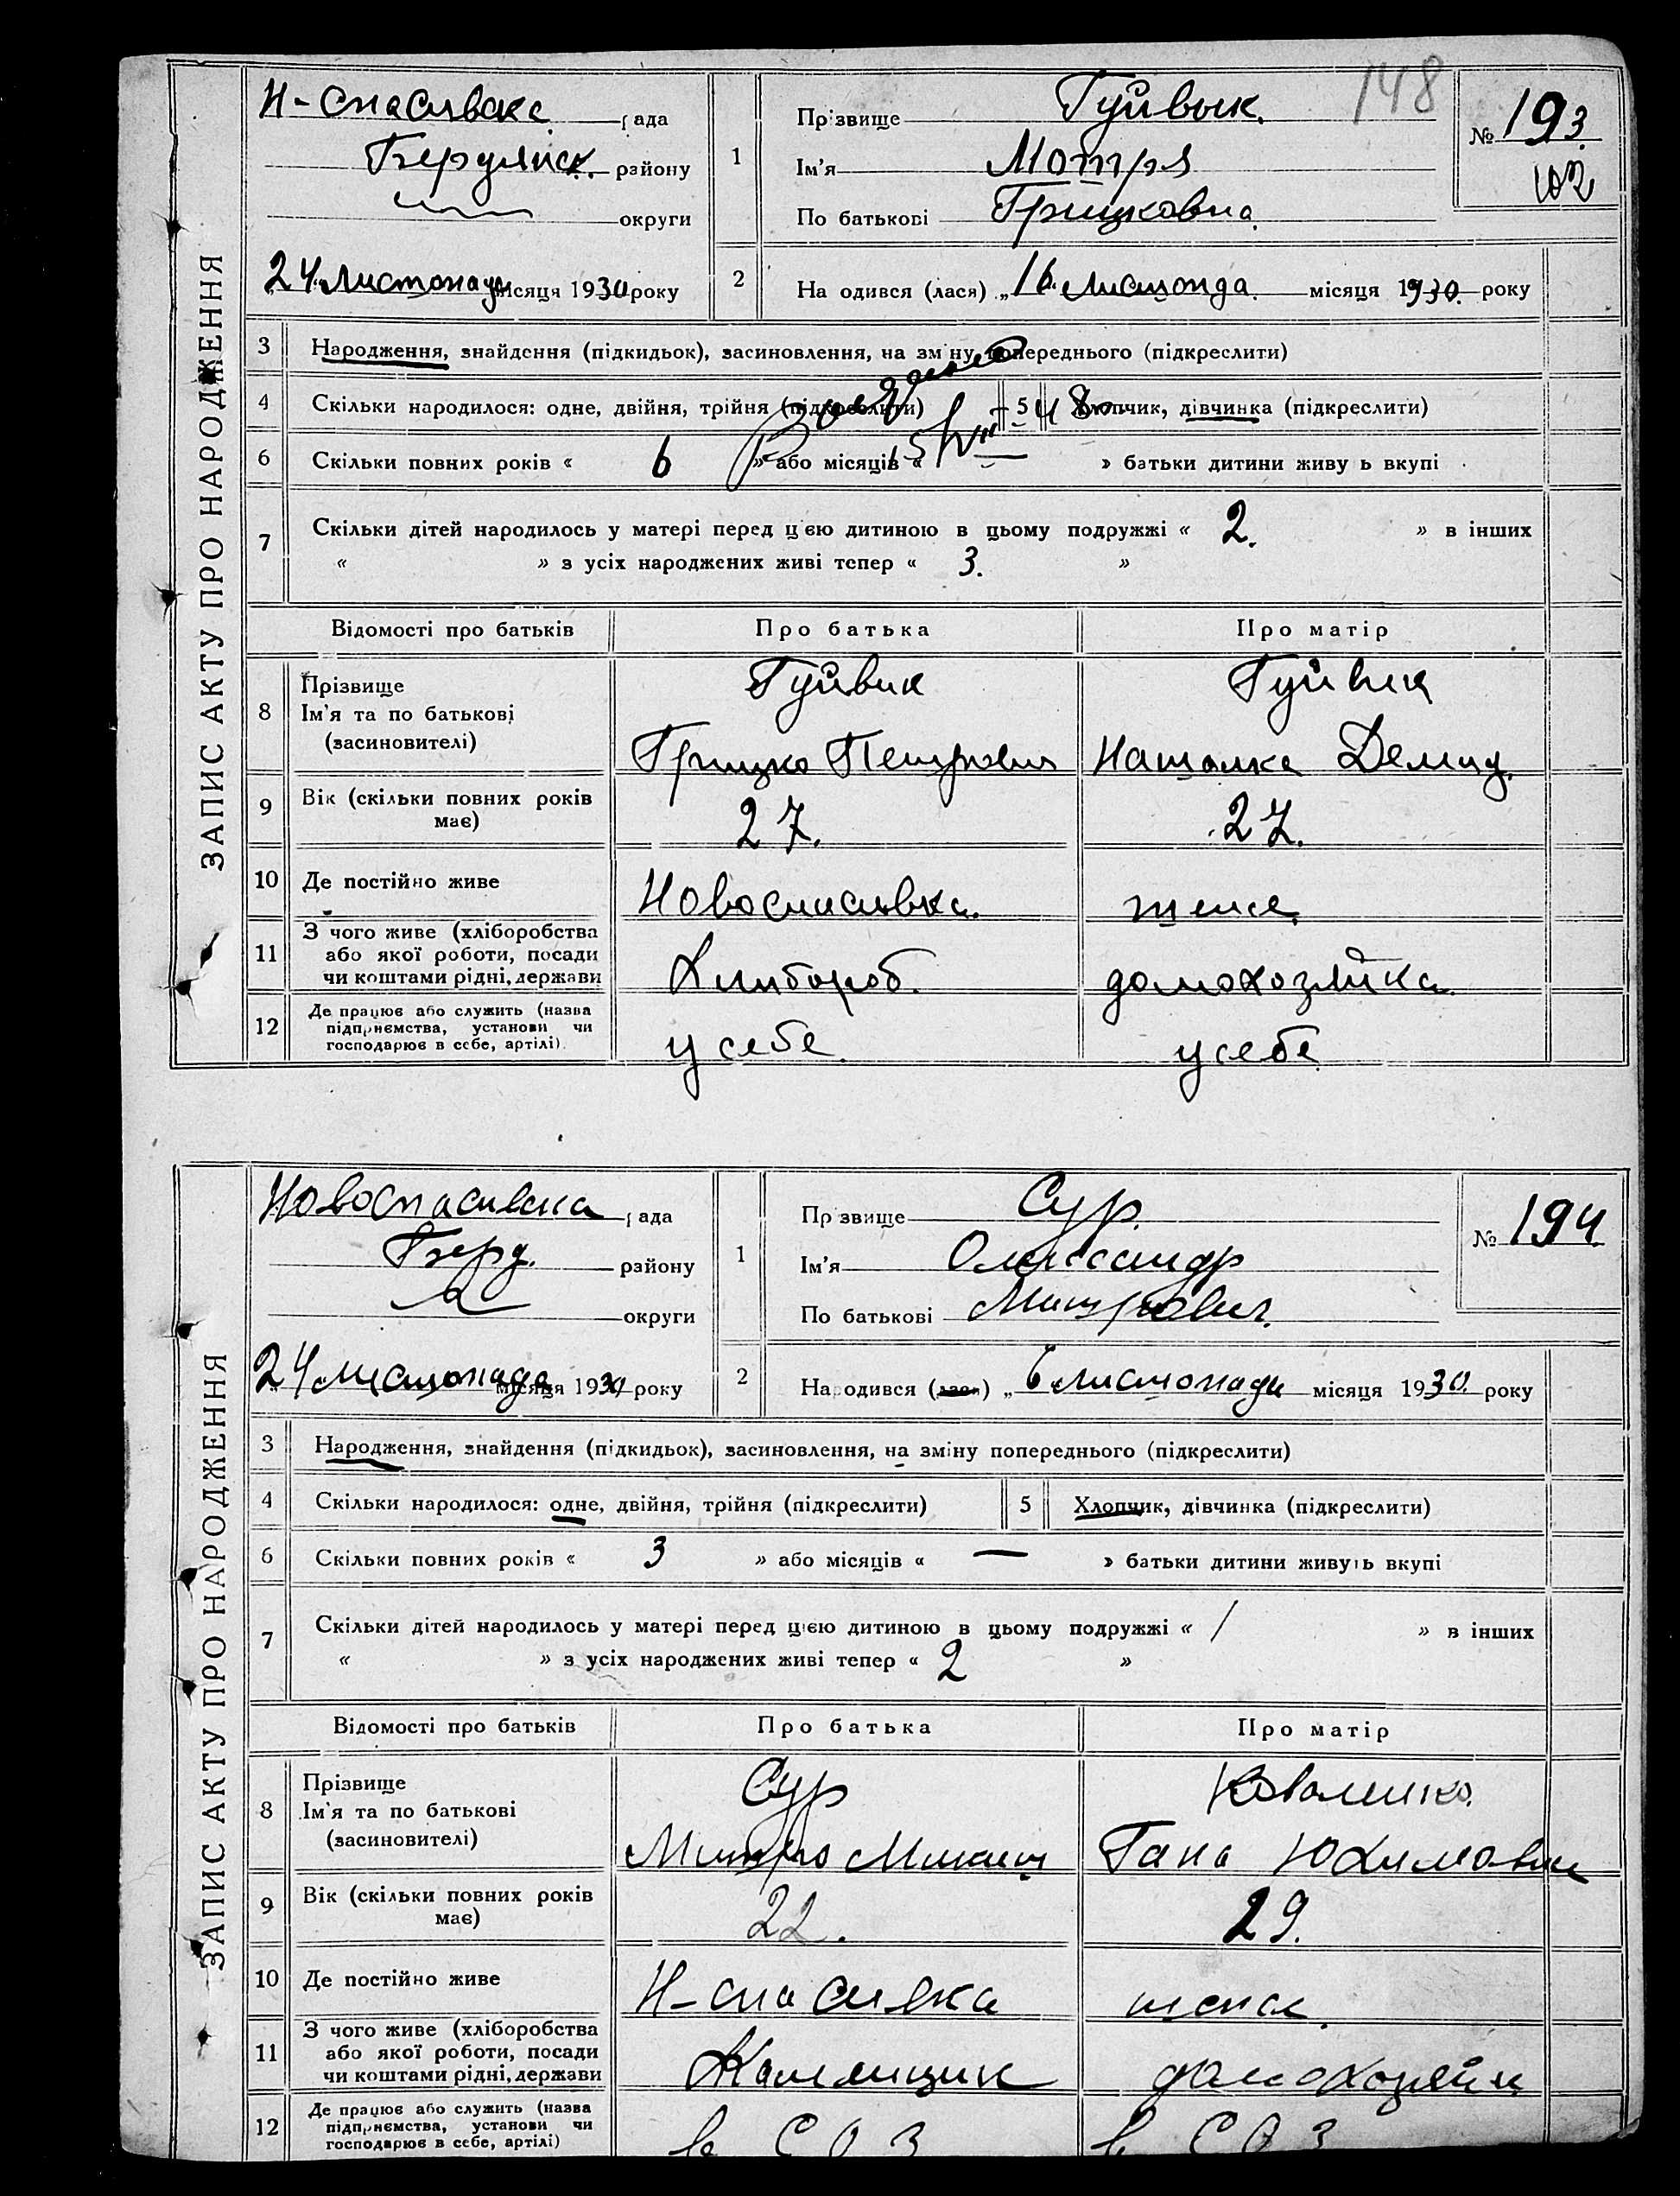 148
Н-Спасівска рада
Бердянск. району
округи
24 Листопада місяця 1930 року
1
Прізвище Гуйвык.
Ім'я Мотря
По батькові Грицковна.
№ 193.
102
2
На одився (лася) „16 Листопда. місяця 1930. року
ЗАПИС АКТУ ПРО НАРОДЖЕННЯ
3 Народження, знайдення (підкидьок), засиновлення, на зміну попереднього (підкреслити)
4 Скільки народилося: одне, двійня, трійня (підкреслити) 5 Хлопчик, дівчинка (підкреслити)
48
6 Скільки повних років « 6 » або місяців « » батьки дитини живу ь вкупі
7 Скільки дітей народилось у матері перед цією дитиною в цьому подружжі « 2. » в інших
« » з усіх народжених живі тепер « 3. »
Відомості про батьків Про батька Про матір
8 Прізвище
Ім'я та по батькові
(засиновителі)
Гуйвик
Грицко Петрович
Гуйвик
Наталка Демид.
9 Вік (скільки повних років
має)
27. 27.
10 Де постійно живе Новоспасівка. теж
11 З чого живе (хліборобства
або якої роботи, посади
чи коштами рідні, держави
Хлібороб. домохозяйка.
12 Де працює або служить (назва
підприємства, установи чи
господарює в себе, артілі)
у себе у себе
Новоспасивска рада
Берд. району
округи
24 листопада місяця 1930 року
1
Пр звище Сур.
Ім'я Олександр
По батькові Митрович.
№ 194.
2
Народився (лася) „ 6 листопади місяця 1930. року
ЗАПИС АКТУ ПРО НАРОДЖЕННЯ
3 Народження, знайдення (підкидьок), засиновлення, на зміну попереднього (підкреслити)
4 Скільки народилося: одне, двійня, трійня (підкреслити) 5 Хлопчик, дівчинка (підкреслити)
6 Скільки повних років « 3 » або місяців « — » батьки дитини живуть вкупі
7 Скільки дітей народилось у матері перед цією дитиною в цьому подружжі « / » в інших
« » з усіх народжених живі тепер « 2 »
Відомості про батьків Про батька Про матір
8 Прізвище
Ім'я та по батькові
(засиновителі)
Сур
Митро Микит
Коваленко.
Гана Юхимовна
9 Вік (скільки повних років
має)
22. 29.
10 Де постійно живе Н-Спасивка
11 З чого живе (хліборобства
або якої роботи, посади
чи коштами рідні, держави
домохозяйк
12 Де працює або служить (назва
підприємства, установи чи
господарює в себе, артілі)
в СОЗ в СОЗ